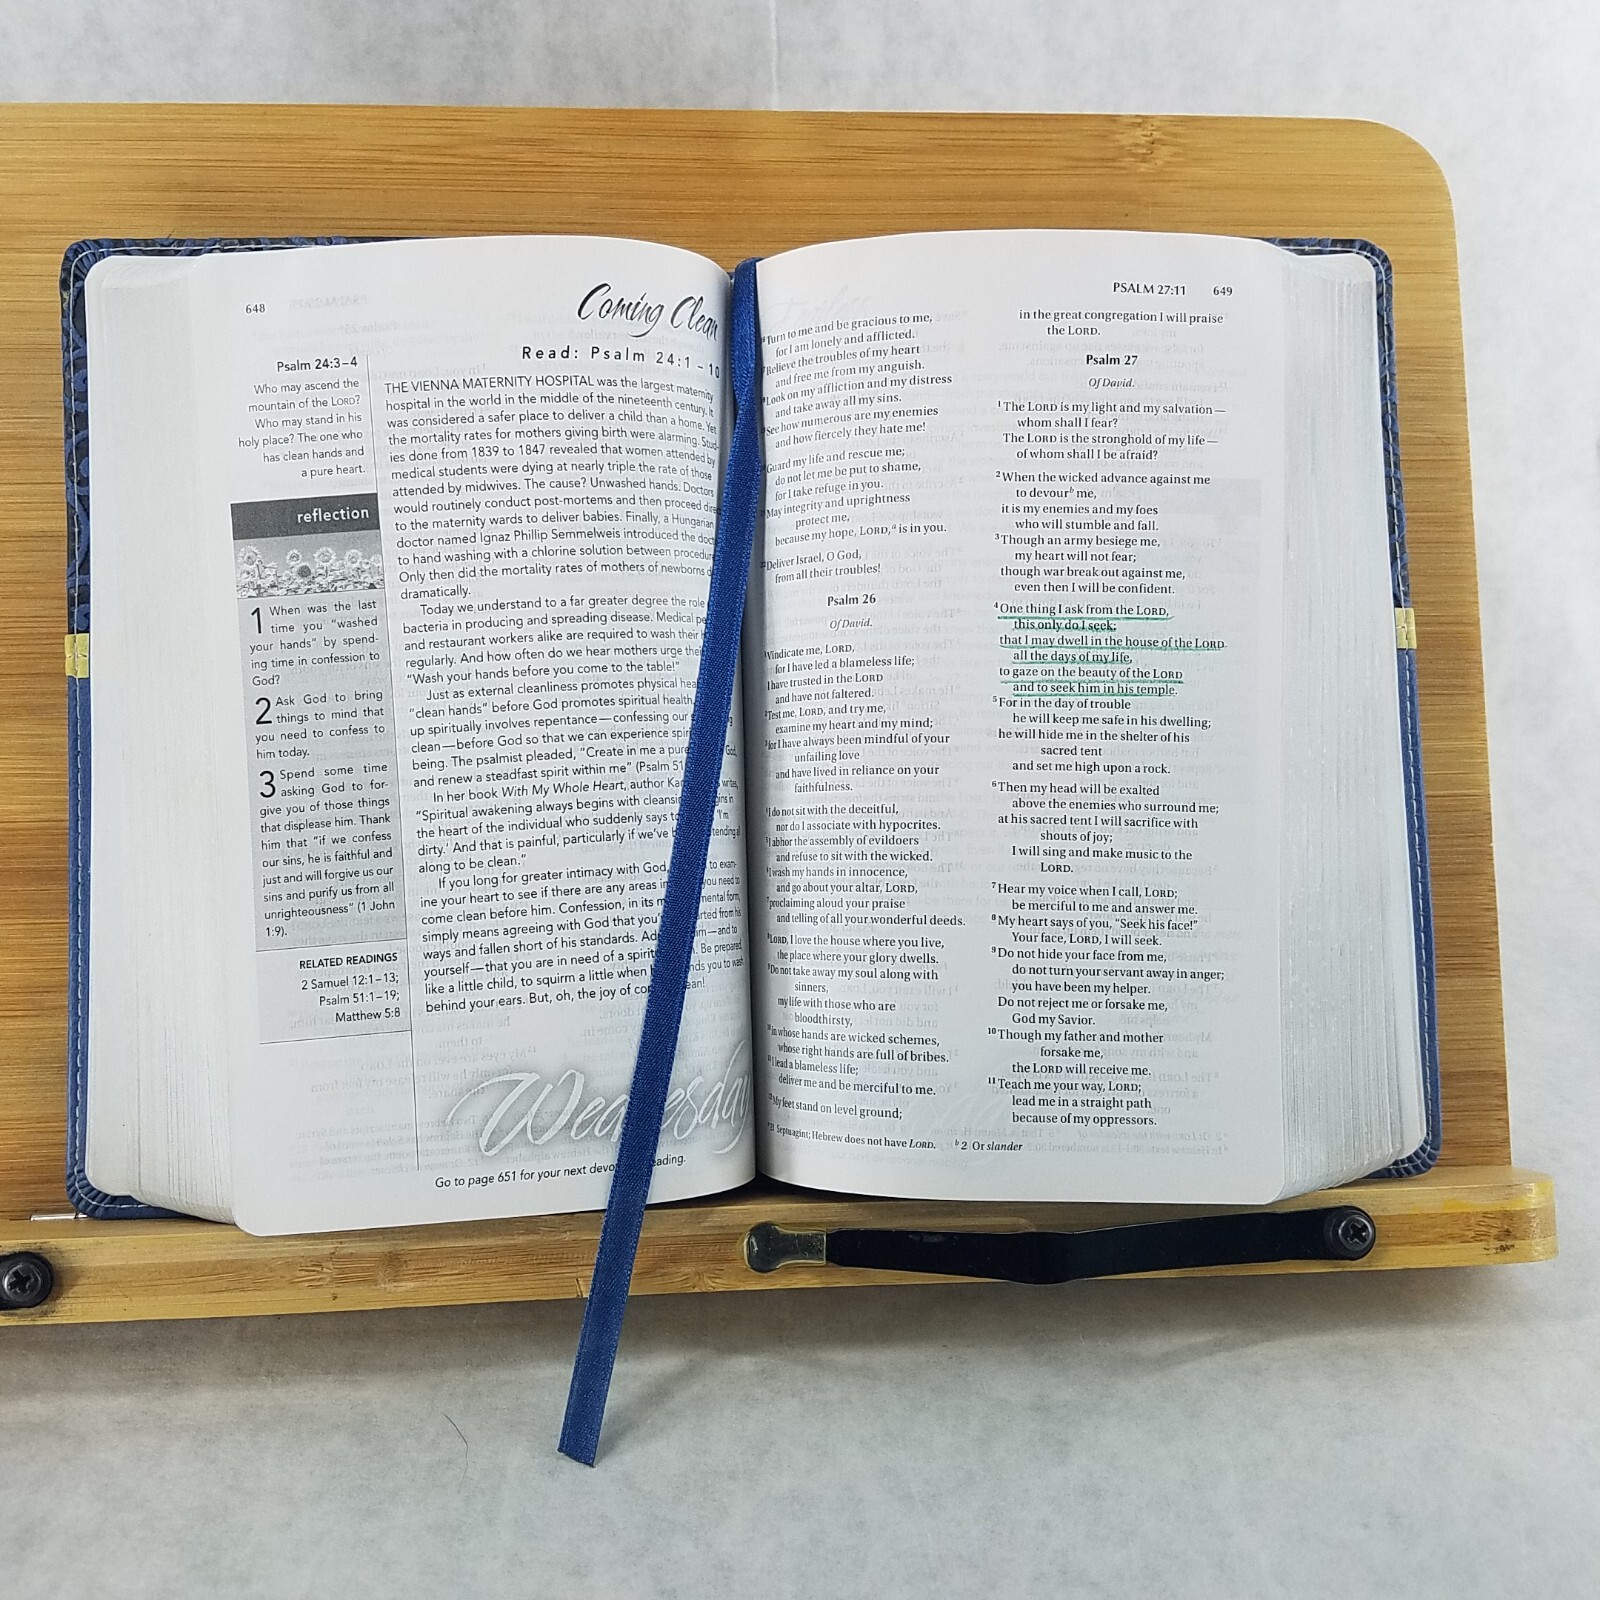 648
Coming Clean
Read: Psalm 24:1–10
Psalm 24:3–4
Who may ascend the
mountain of the LORD?
Who may stand in his
holy place? The one who
has clean hands and
a pure heart.
reflection
1 When was the last
time you “washed
your hands” by spend-
ing time in confession to
God?
2 Ask God to bring
things to mind that
you need to confess to
him today.
3 Spend some time
asking God to for-
give you of those things
that displease him. Thank
him that “if we confess
our sins, he is faithful and
just and will forgive us our
sins and purify us from all
unrighteousness” (1 John
1:9).
RELATED READINGS
2 Samuel 12:1–13;
Psalm 51:1–19;
Matthew 5:8
THE VIENNA MATERNITY HOSPITAL was the largest maternity
hospital in the world in the middle of the nineteenth century. It
was considered a safer place to deliver a child than a home. Yet
the mortality rates for mothers giving birth were alarming. Stud-
ies done from 1839 to 1847 revealed that women attended by
medical students were dying at nearly triple the rate of those
attended by midwives. The cause? Unwashed hands. Doctors
would routinely conduct post-mortems and then proceed
to the maternity wards to deliver babies. Finally, a Hungarian
doctor named Ignaz Phillip Semmelweis introduced the
to hand washing with a chlorine solution between
Only then did the mortality rates of mothers of newborns
dramatically.
Today we understand to a far greater degree the role
bacteria in producing and spreading disease. Medical
and restaurant workers alike are required to wash their
regularly. And how often do we hear mothers urge
“Wash your hands before you come to the table!”
Just as external cleanliness promotes physical
“clean hands” before God promotes spiritual health.
up spiritually involves repentance—confessing our
clean—before God so that we can experience
being. The psalmist pleaded, “Create in me a pure God,
and renew a steadfast spirit within me” (Psalm
In her book With My Whole Heart, author writes,
“Spiritual awakening always begins with in
the heart of the individual who suddenly says ‘I’m
dirty.’ And that is painful, particularly if we’ve
along to be clean.”
If you long for greater intimacy with God, to exam-
ine your heart to see if there are any areas in you need to
come clean before him. Confession, in its form,
simply means agreeing with God that from his
ways and fallen short of his standards. and to
yourself—that you are in need of a Be prepared,
like a little child, to squirm a little when you to wash
behind your ears. But, oh, the joy of
Wednesday
Go to page 651 for your next
PSALM 27:11 649
16 Turn to me and be gracious to me,
for I am lonely and afflicted.
17 Relieve the troubles of my heart
and free me from my anguish.
18 Look on my affliction and my distress
and take away all my sins.
19 See how numerous are my enemies
and how fiercely they hate me!
20 Guard my life and rescue me;
do not let me be put to shame,
for I take refuge in you.
21 May integrity and uprightness
protect me,
because my hope, LORD,a is in you.
22 Deliver Israel, O God,
from all their troubles!
Psalm 26
Of David.
1 Vindicate me, LORD,
for I have led a blameless life;
I have trusted in the LORD
and have not faltered.
2 Test me, LORD, and try me,
examine my heart and my mind;
3 for I have always been mindful of your
unfailing love
and have lived in reliance on your
faithfulness.
4 I do not sit with the deceitful,
nor do I associate with hypocrites.
5 I abhor the assembly of evildoers
and refuse to sit with the wicked.
6 I wash my hands in innocence,
and go about your altar, LORD,
7 proclaiming aloud your praise
and telling of all your wonderful deeds.
8 LORD, I love the house where you live,
the place where your glory dwells.
9 Do not take away my soul along with
sinners,
my life with those who are
bloodthirsty,
10 in whose hands are wicked schemes,
whose right hands are full of bribes.
11 I lead a blameless life;
deliver me and be merciful to me.
12 My feet stand on level ground;
in the great congregation I will praise
the LORD.
Psalm 27
Of David.
1 The LORD is my light and my salvation—
whom shall I fear?
The LORD is the stronghold of my life—
of whom shall I be afraid?
2 When the wicked advance against me
to devourb me,
it is my enemies and my foes
who will stumble and fall.
3 Though an army besiege me,
my heart will not fear;
though war break out against me,
even then I will be confident.
4 One thing I ask from the LORD,
this only do I seek:
that I may dwell in the house of the LORD
all the days of my life,
to gaze on the beauty of the LORD
and to seek him in his temple.
5 For in the day of trouble
he will keep me safe in his dwelling;
he will hide me in the shelter of his
sacred tent
and set me high upon a rock.
6 Then my head will be exalted
above the enemies who surround me;
at his sacred tent I will sacrifice with
shouts of joy;
I will sing and make music to the
LORD.
7 Hear my voice when I call, LORD;
be merciful to me and answer me.
8 My heart says of you, “Seek his face!”
Your face, LORD, I will seek.
9 Do not hide your face from me,
do not turn your servant away in anger;
you have been my helper.
Do not reject me or forsake me,
God my Savior.
10 Though my father and mother
forsake me,
the LORD will receive me.
11 Teach me your way, LORD;
lead me in a straight path
because of my oppressors.
a 21 Septuagint; Hebrew does not have LORD. b 2 Or slander